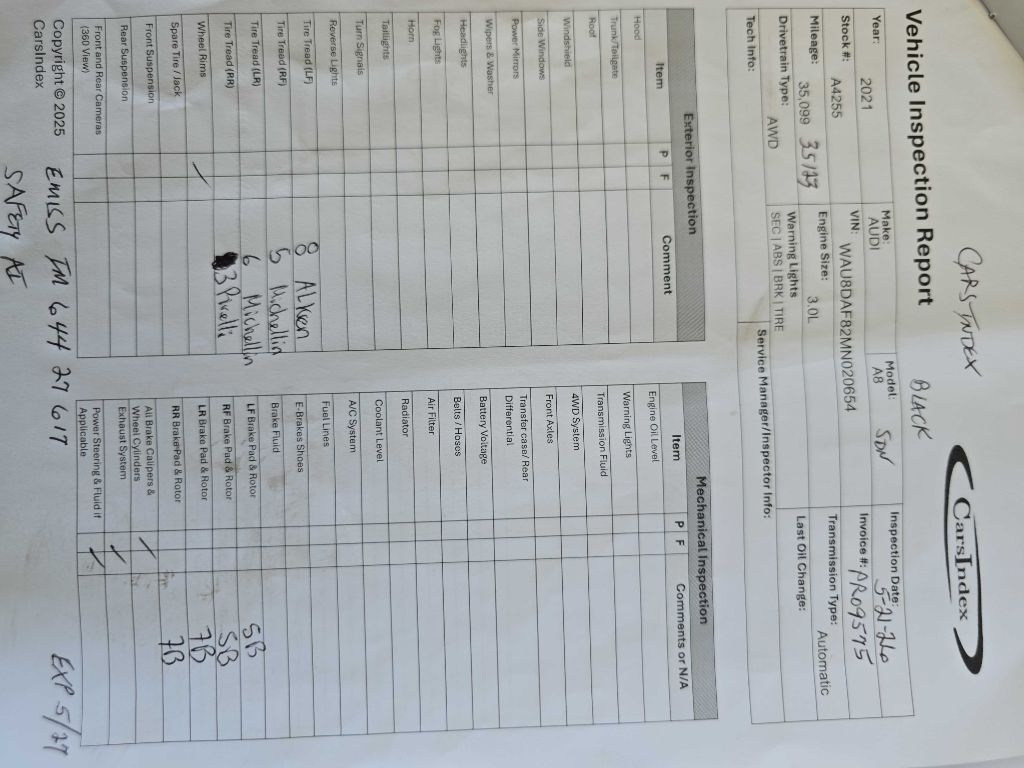 CARSINDEX
CarsIndex
Vehicle Inspection Report
BLACK
Year: 2021
Make: AUDI
Model: A8 SDN
Inspection Date: 5-21-26
Stock #: A4255
VIN: WAU8DAF82MN020654
Invoice #: PR09575
Mileage: 35,099 35123
Engine Size: 3.0L
Transmission Type: Automatic
Drivetrain Type: AWD
Warning Lights
SEC | ABS | BRK | TIRE
Last Oil Change:
Tech Info:
Service Manager/Inspector Info:
Exterior Inspection
Item P F Comment
Hood
Trunk/Tailgate
Roof
Windshield
Side Windows
Power Mirrors
Wipers & Washer
Headlights
Fog Lights
Horn
Taillights
Turn Signals
Reverse Lights
Tire Tread (LF) 8
Tire Tread (RF) 5 Michellin
Tire Tread (LR) 6 Michellin
Tire Tread (RR) 3 Pirelli
Wheel Rims
Spare Tire / Jack
Front Suspension
Rear Suspension
Front and Rear Cameras
(360 View)
Mechanical Inspection
Item P F Comments or N/A
Engine Oil Level
Warning Lights
Transmission Fluid
4WD System
Front Axles
Transfer case/ Rear
Differential
Battery Voltage
Belts / Hoses
Air Filter
Radiator
Coolant Level
A/C System
Fuel Lines
E-Brakes Shoes
Brake Fluid
LF Brake Pad & Rotor 5B
RF Brake Pad & Rotor 5B
LR Brake Pad & Rotor 7B
RR Brake Pad & Rotor 7B
All Brake Calipers &
Wheel Cylinders
Exhaust System
Power Steering & Fluid if
Applicable
Copyright © 2025
CarsIndex
EMISS IM 644 27 617
EXP 5/27
SAFETY AI